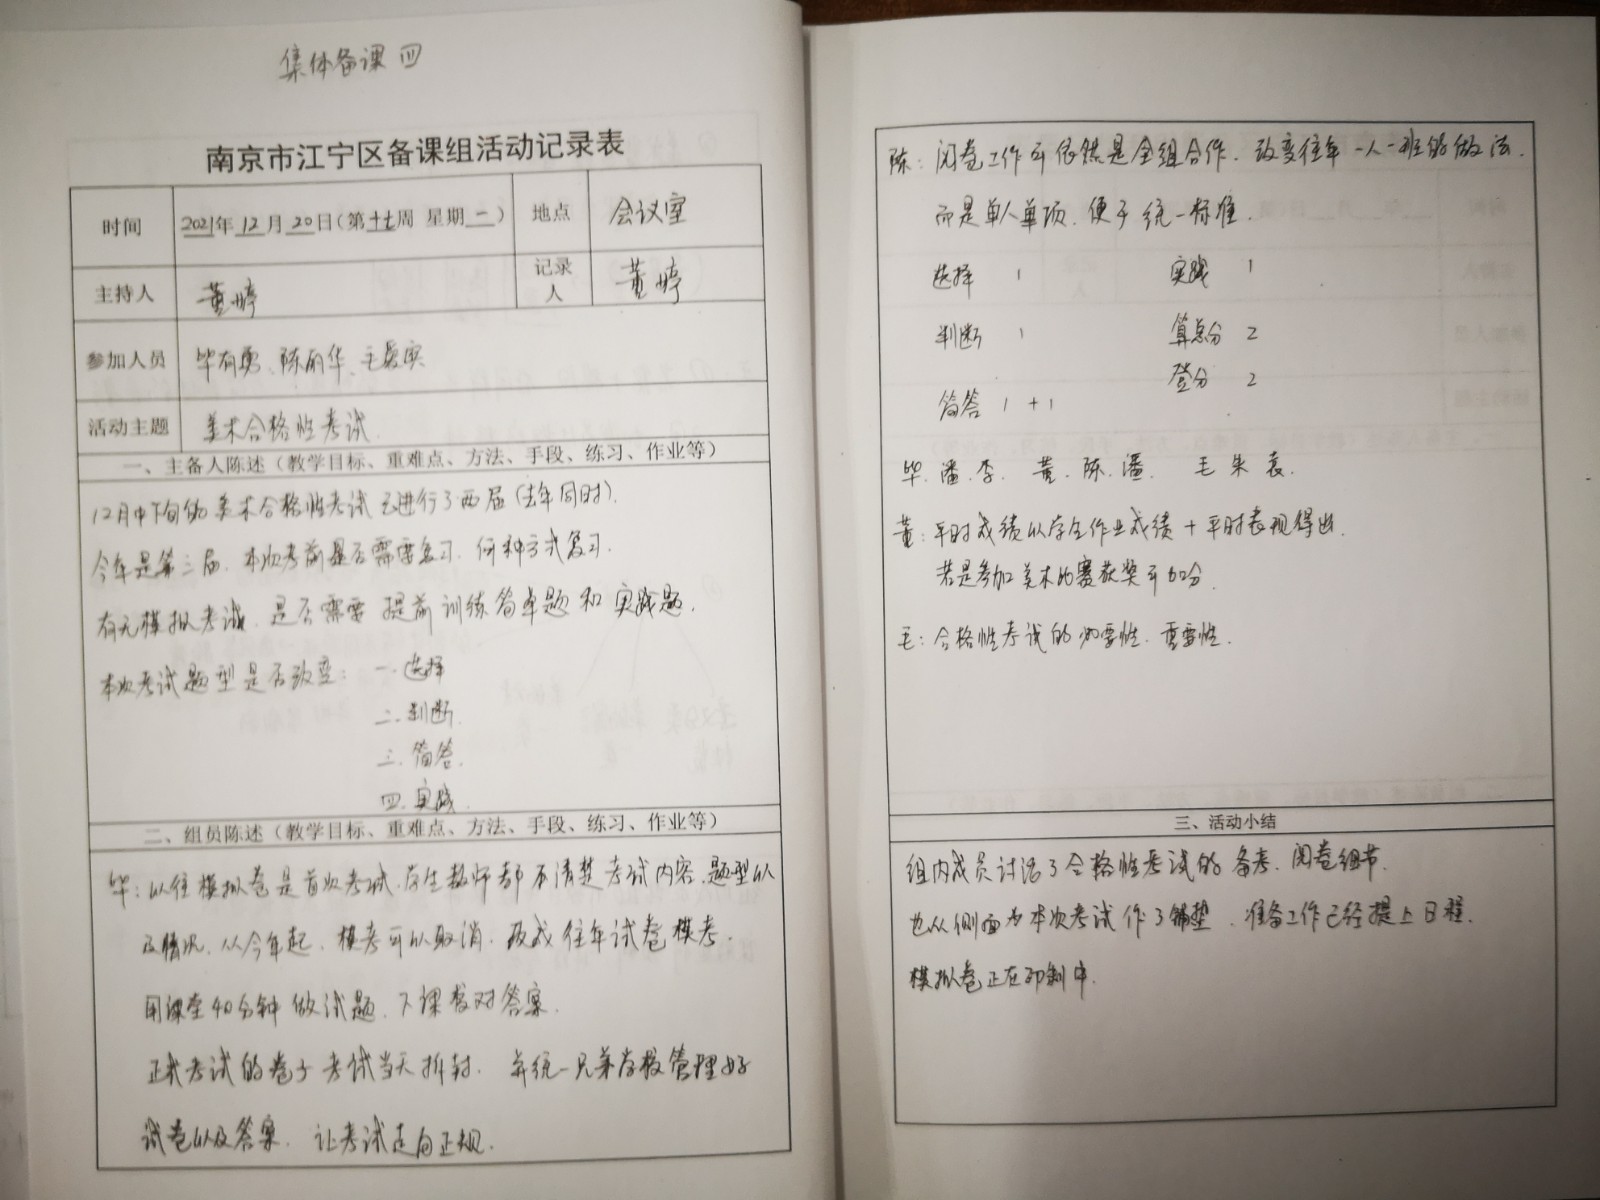 集体备课 四
南京市江宁区备课组活动记录表
时间 2021年 12 月 20 日(第十七周 星期 一) 地点 会议室
主持人 董婷 记录人 董婷
参加人员 毕有勇、陈丽华、毛爱实
活动主题 美术合格性考试
一、主备人陈述（教学目标、重难点、方法、手段、练习、作业等）
12月中下旬的美术合格性考试已进行了两届(去年同时).
今年是第三届. 本次考前是否需要复习. 何种方式复习.
有无模拟考试. 是否需要 提前训练简单题和实践题.
本次考试题型是否改变: 一.选择
二.判断.
三.简答.
四.实践.
二、组员陈述（教学目标、重难点、方法、手段、练习、作业等）
毕: 以往模拟卷是首次考试.学生教师都不清楚考试内容.题型以
及情况. 从今年起. 模考可以取消. 改成往年试卷模考.
用课堂40分钟做试题. 下课校对答案.
正式考试的卷子考试当天拆封. 并统一兄弟学校管理好
试卷以及答案. 让考试走向正规.
陈: 阅卷工作可依然是全组合作. 改变往年一人一班的做法.
而是单人单项. 便于统一标准.
选择 1 实践 1
判断 1 算总分 2
登分 2
简答 1+1
毕.潘.李. 董.陈.潘. 毛 朱 袁.
董: 平时成绩以学生作业成绩+平时表现得出.
若是参加美术比赛获奖可加分.
毛: 合格性考试的必要性. 重要性.
三、活动小结
组内成员讨论了合格性考试的备考. 阅卷细节.
也从侧面为本次考试作了铺垫. 准备工作已经提上日程.
模拟卷正在印制中.